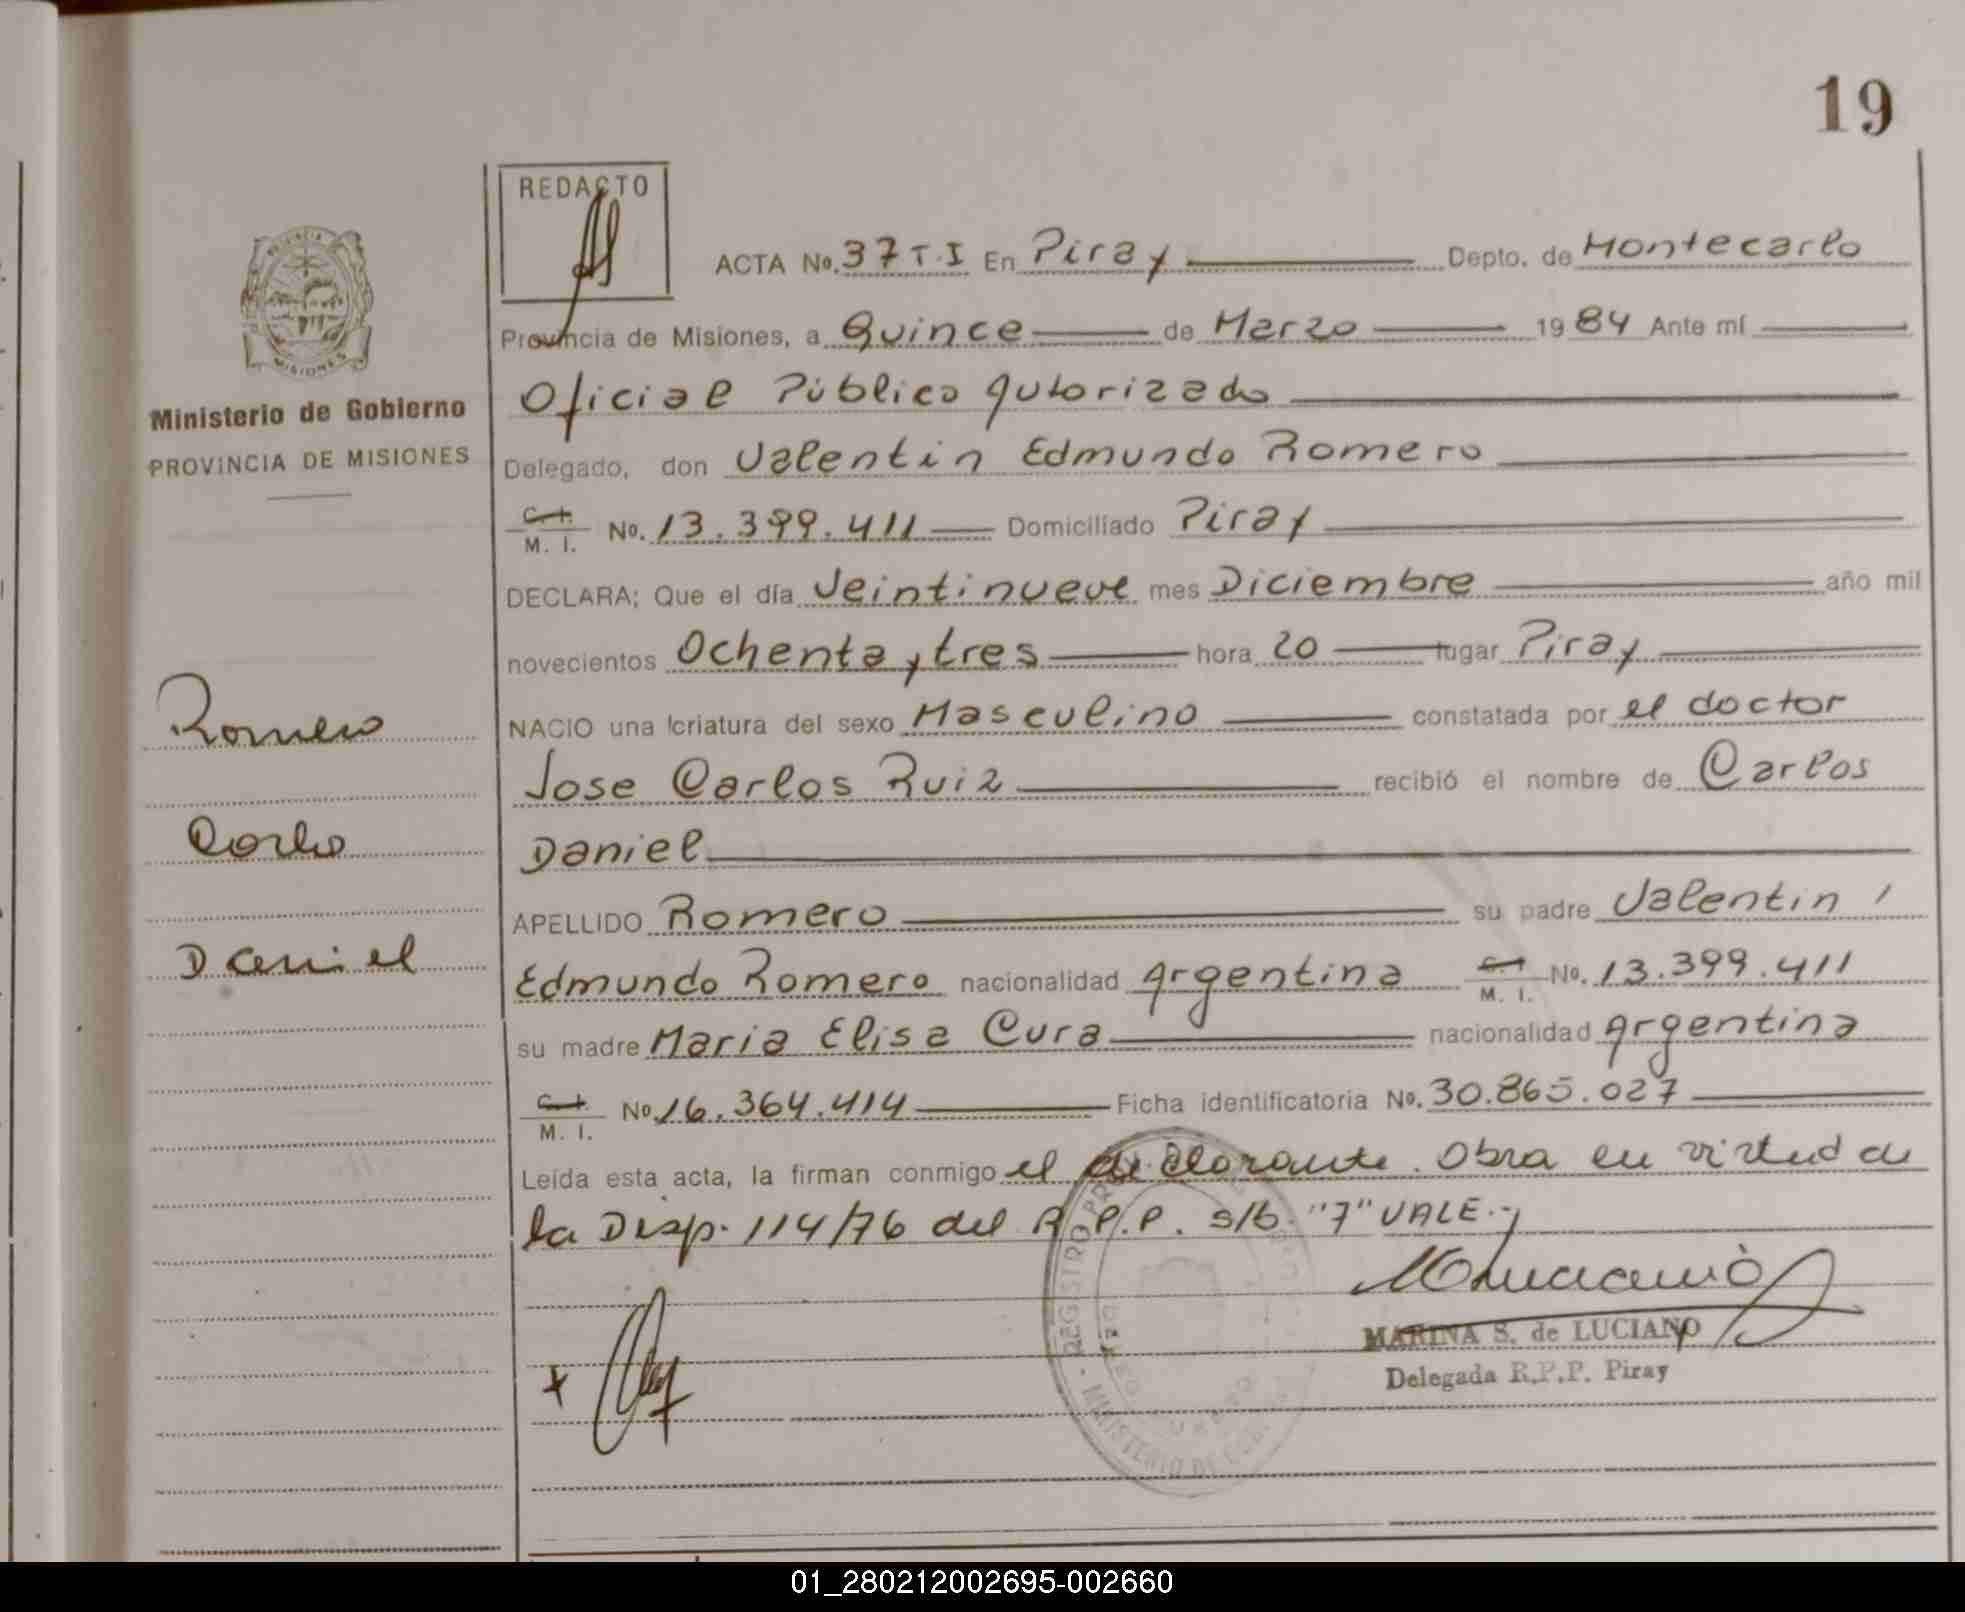 19
REDACTO
ACTA No. 37 T.I En Piray Depto. de Montecarlo
Provincia de Misiones, a Quince de Marzo 1984 Ante mí
Oficial Público Autorizado
Delegado, don Valentin Edmundo Romero
C.I. M. I. No. 13.399.411 Domiciliado Piray
DECLARA; Que el día Veintinueve mes Diciembre año mil
novecientos Ochenta y tres hora 20 lugar Piray
NACIO una criatura del sexo Masculino constatada por el doctor
Jose Carlos Ruiz recibió el nombre de Carlos
Daniel
APELLIDO Romero su padre Valentin
Edmundo Romero nacionalidad Argentina C.I. M. I. No. 13.399.411
su madre Maria Elisa Cura nacionalidad Argentina
C.I. M. I. No. 16.364.414 Ficha identificatoria No. 30.865.027
Leída esta acta, la firman conmigo el declarante. Obra en virtud de
la Disp. 114/76 del R.P.P. s/b. "7" VALE.-
MARINA S. de LUCIANO
Delegada R.P.P. Piray
REGISTRO PRO
MINISTERIO DE
PROVINCIA DE
MISIONES
Ministerio de Gobierno
PROVINCIA DE MISIONES
Romero
Carlos
Daniel
01_280212002695-002660